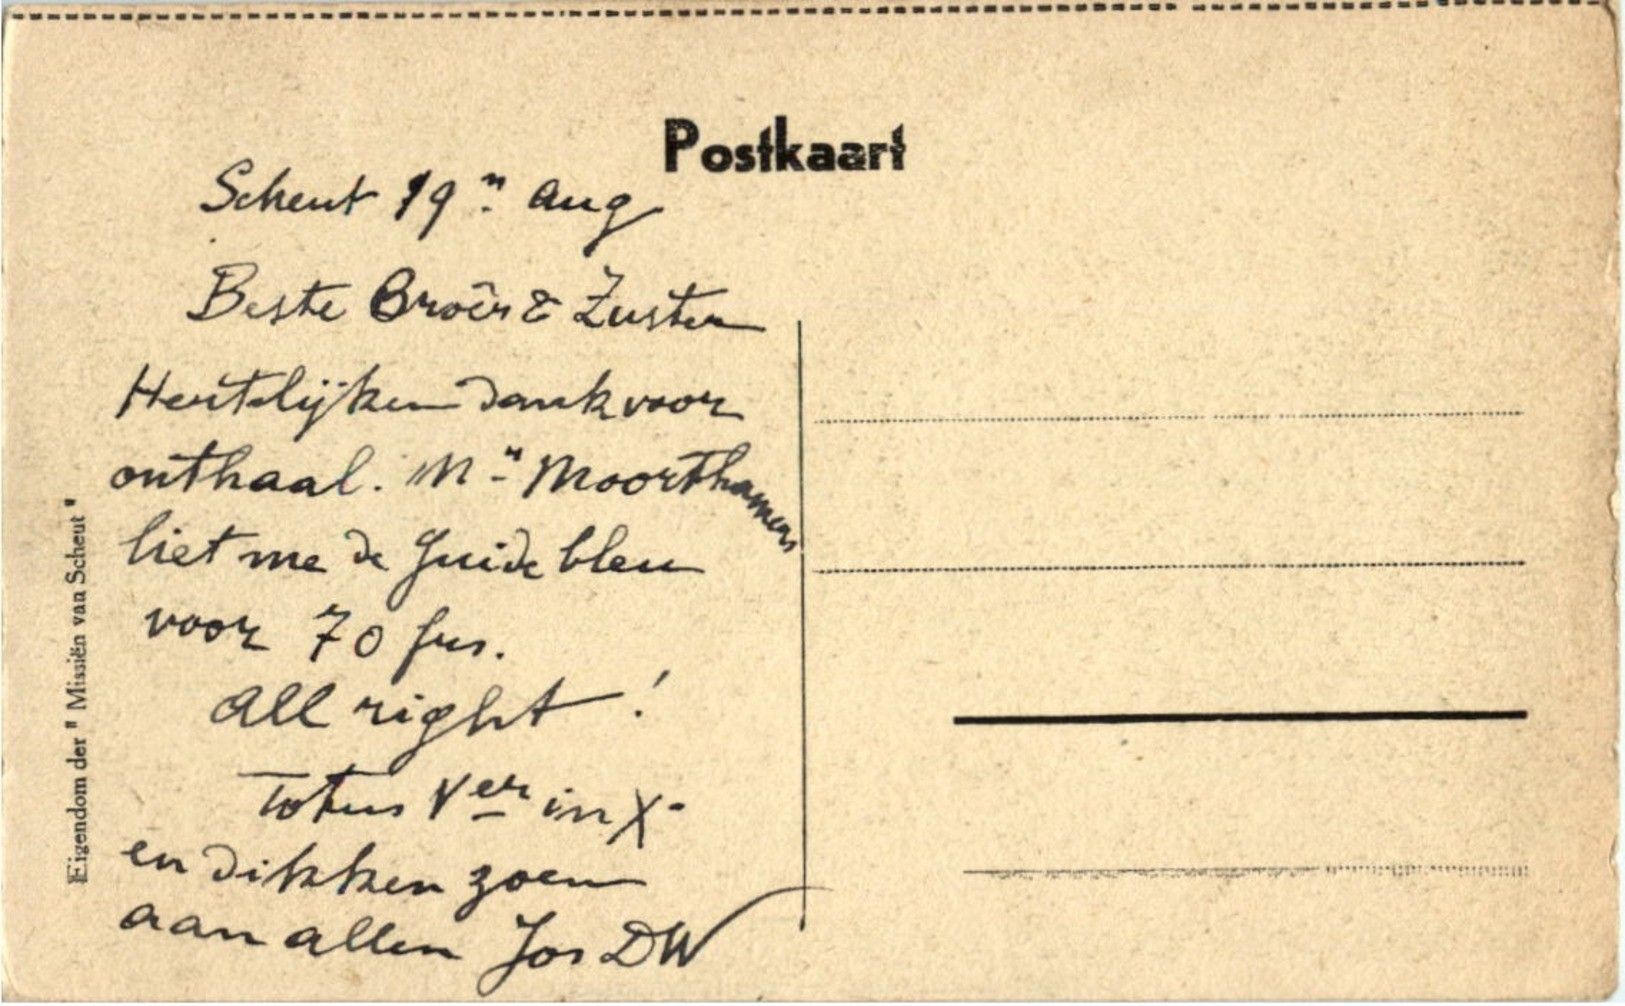 Postkaart
Scheut 19n aug
Beste Broêr & Zuster
Hertelijken dank voor
onthaal. Mr Moorthamers
liet me de Guide bleu
voor 70 frs.
All right !
Totus Ver in X.
en dikken zoen
aan allen Jos DW
Eigendom der " Missiën van Scheut "